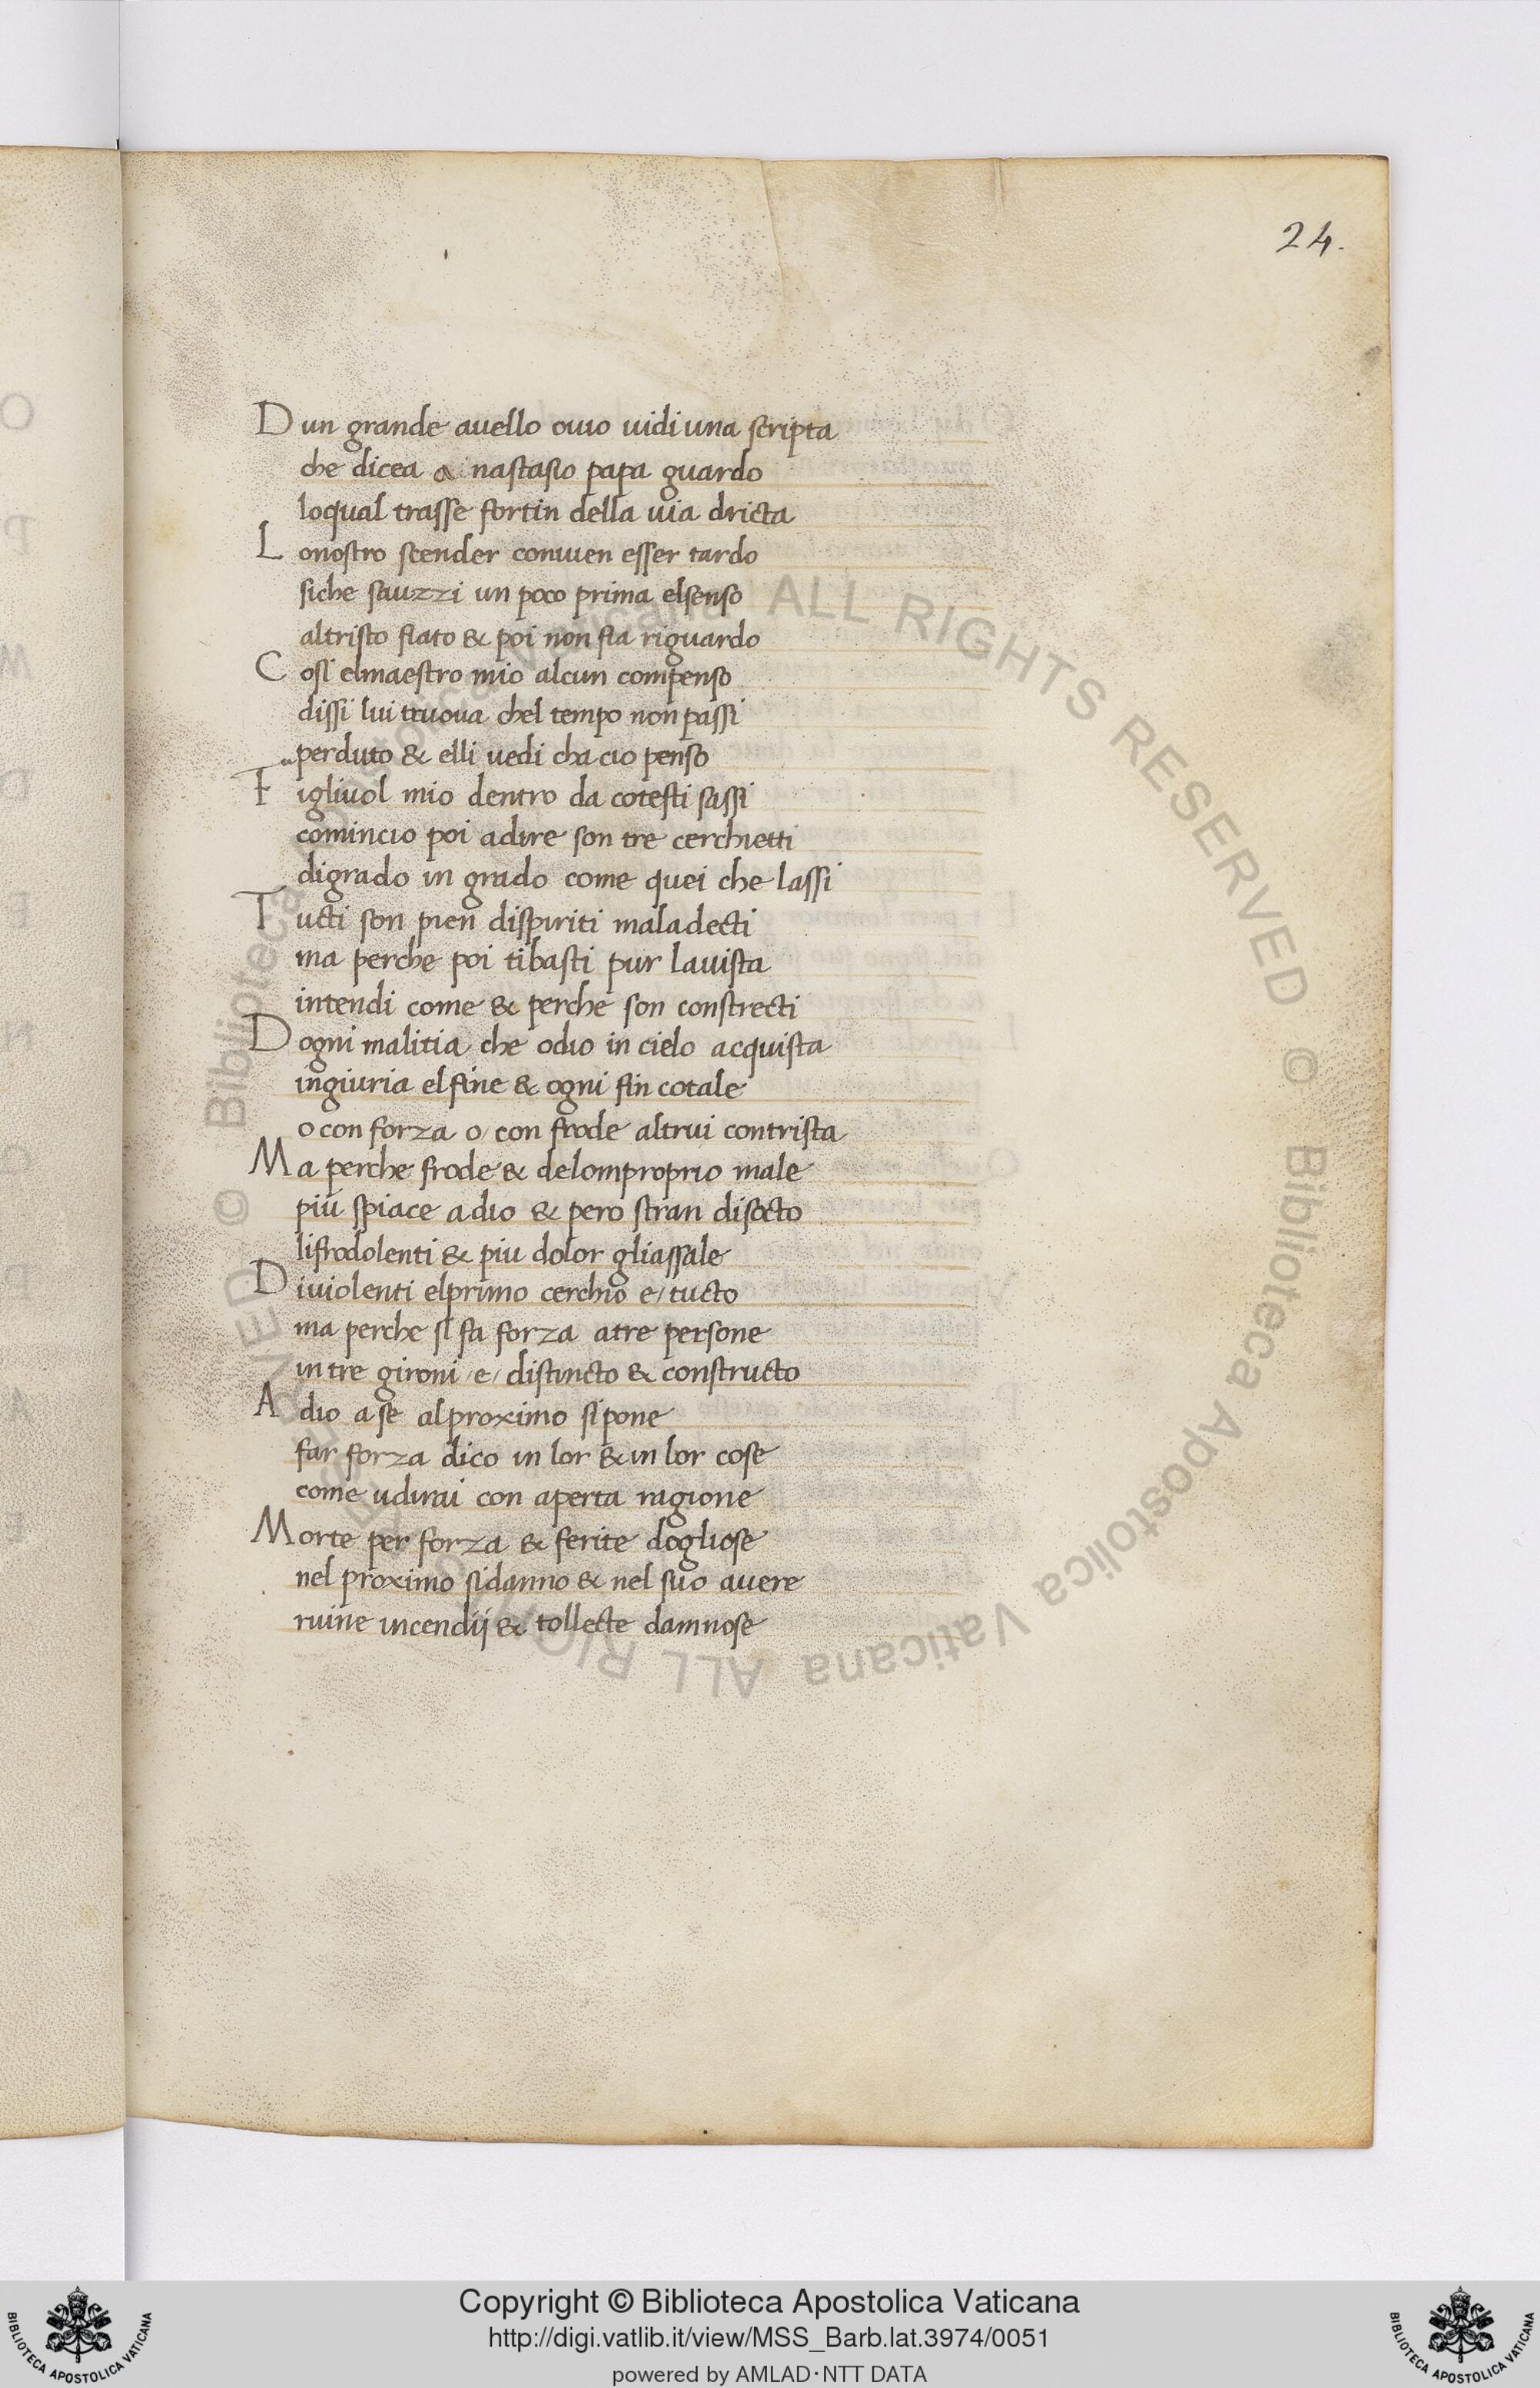 24.
D un grande auello ouio uidi una scripta
che dicea a nastasio papa guardo
loqual trasse fortin della uia dricta
L onostro scender conuien esser tardo
siche sauzzi un poco prima elsenso
altristo fiato & poi non fia riguardo
C osi elmaestro mio alcun compenso
dissi lui truoua chel tempo non passi
perduto & elli uedi cha cio penso
F igliuol mio dentro da cotesti sassi
comincio poi adire son tre cerchietti
digrado in grado come quei che lassi
T ucti son pien dispiriti maladecti
ma perche poi tibasti pur lauista
intendi come & perche son constrecti
D ogni malitia che odio in cielo acquista
ingiuria elfine & ogni fin cotale
o con forza o/ con frode altrui contrista
M a perche frode & delomproprio male
piu spiace adio & pero stran disocto
lifrodolenti & piu dolor gliassale
D iuiolenti elprimo cerchio e/ tucto
ma perche si fa forza atre persone
in tre gironi /e/ distincto & constructo
A dio ase alproximo sipone
far forza dico in lor & in lor cose
come udirai con aperta ragione
M orte per forza & ferite dogliose
nel proximo sidanno & nel suo auere
ruine incendij & tollecte damnose
© Biblioteca Apostolica Vaticana ALL RIGHTS RESERVED
© Biblioteca Apostolica Vaticana ALL RIGHTS RESERVED
Copyright © Biblioteca Apostolica Vaticana
http://digi.vatlib.it/view/MSS_Barb.lat.3974/0051
powered by AMLAD·NTT DATA
BIBLIOTECA APOSTOLICA VATICANA
BIBLIOTECA APOSTOLICA VATICANA